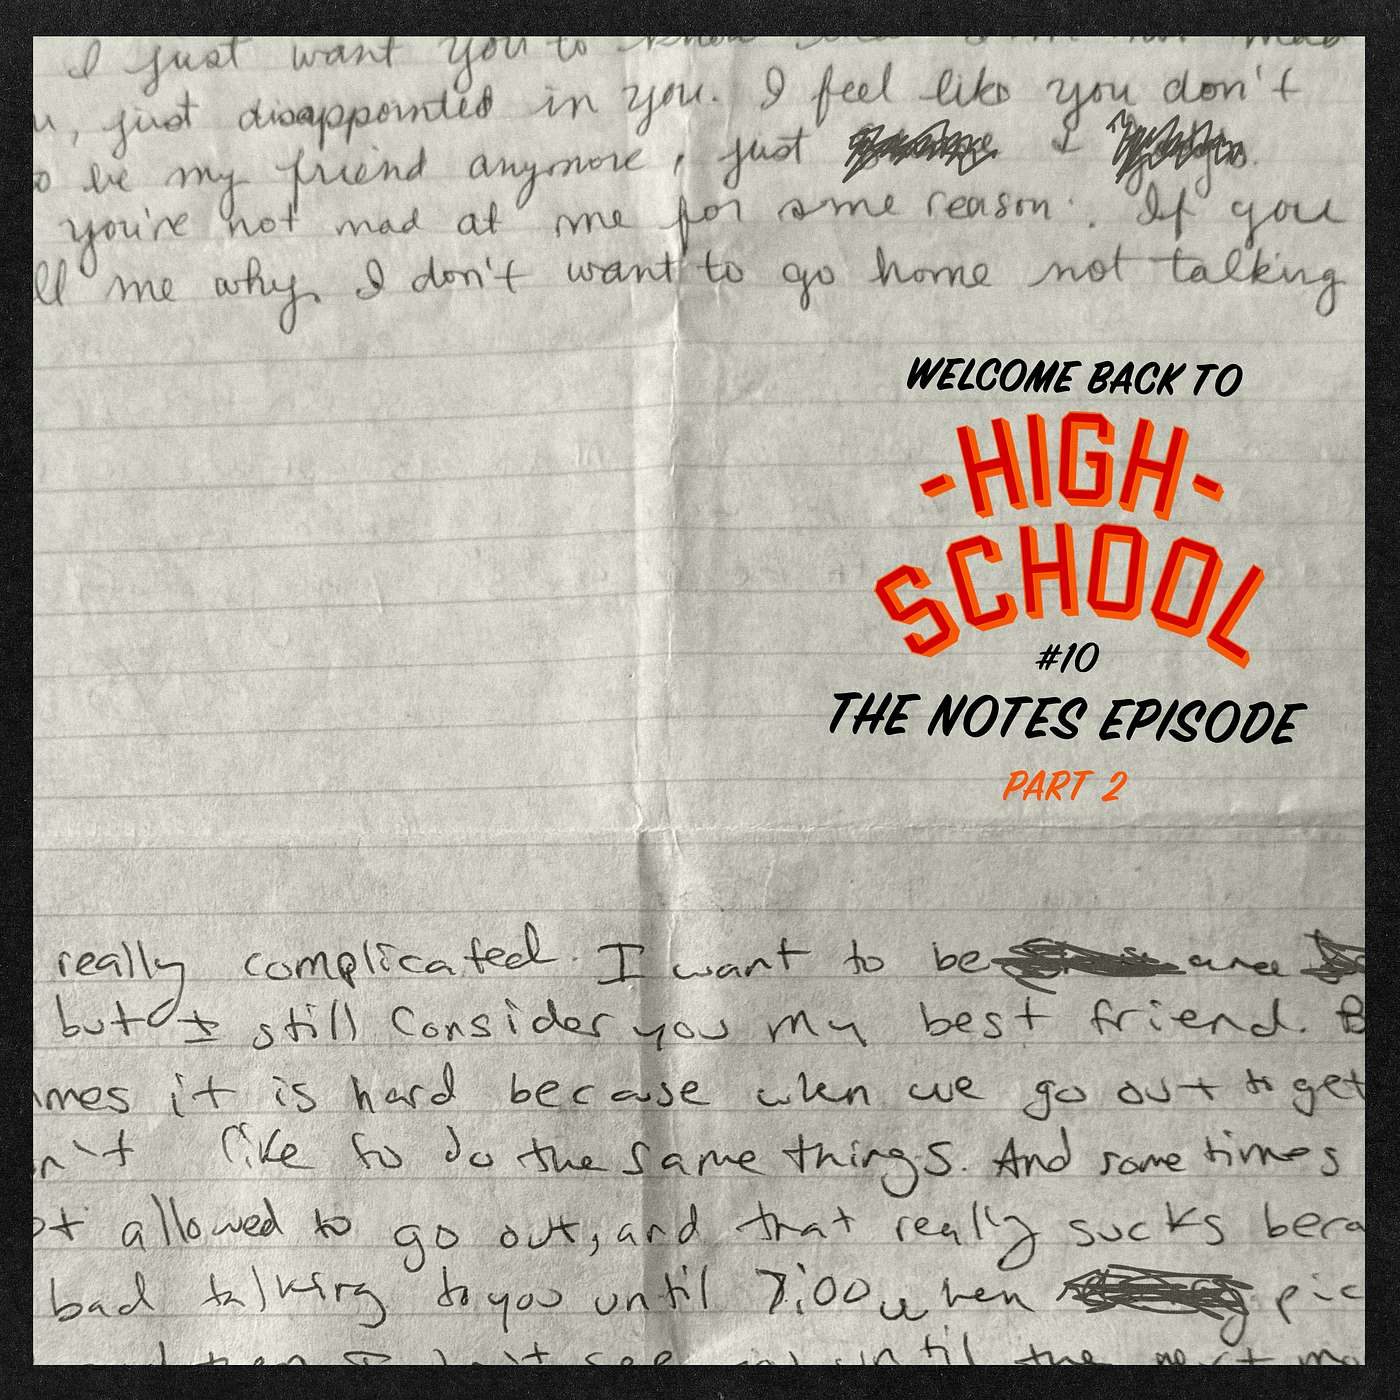 I just want you to know
u, just disappointed in you. I feel like you don't
o be my friend anymore, just I
you're not mad at me for some reason. If you
ll me why. I don't want to go home not talking
WELCOME BACK TO
-HIGH-
SCHOOL
#10
THE NOTES EPISODE
PART 2
really complicated. I want to be
but I still consider you my best friend. B
mes it is hard because when we go out to get
n't like to do the same things. And sometimes
ot allowed to go out, and that really sucks beca
bad talking to you until 7:00 when pic
see until the next mo